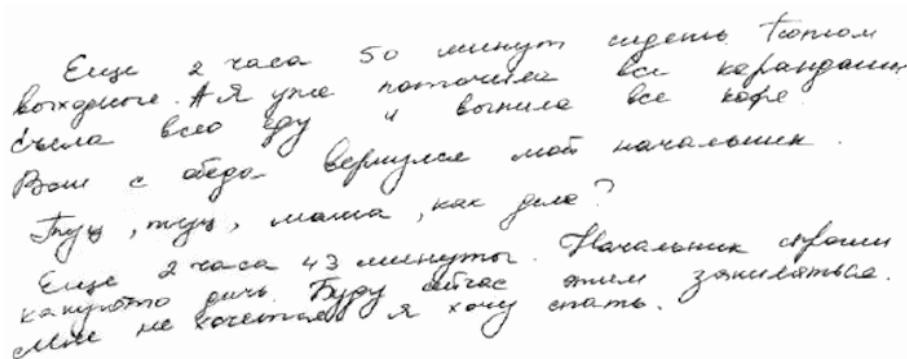 Еще 2 часа 50 минут сидеть. Потом
выходные. А я уже поточила все карандаши
съела всю еду и выпила все кофе.
Вот с обеда вернулся мой начальник.
Туц, туц, мама, как дела?
Еще 2 часа 43 минуты. Начальник спросил
какуюто дичь. Буду сейчас этим заниматься.
Мне не хочется я хочу спать.